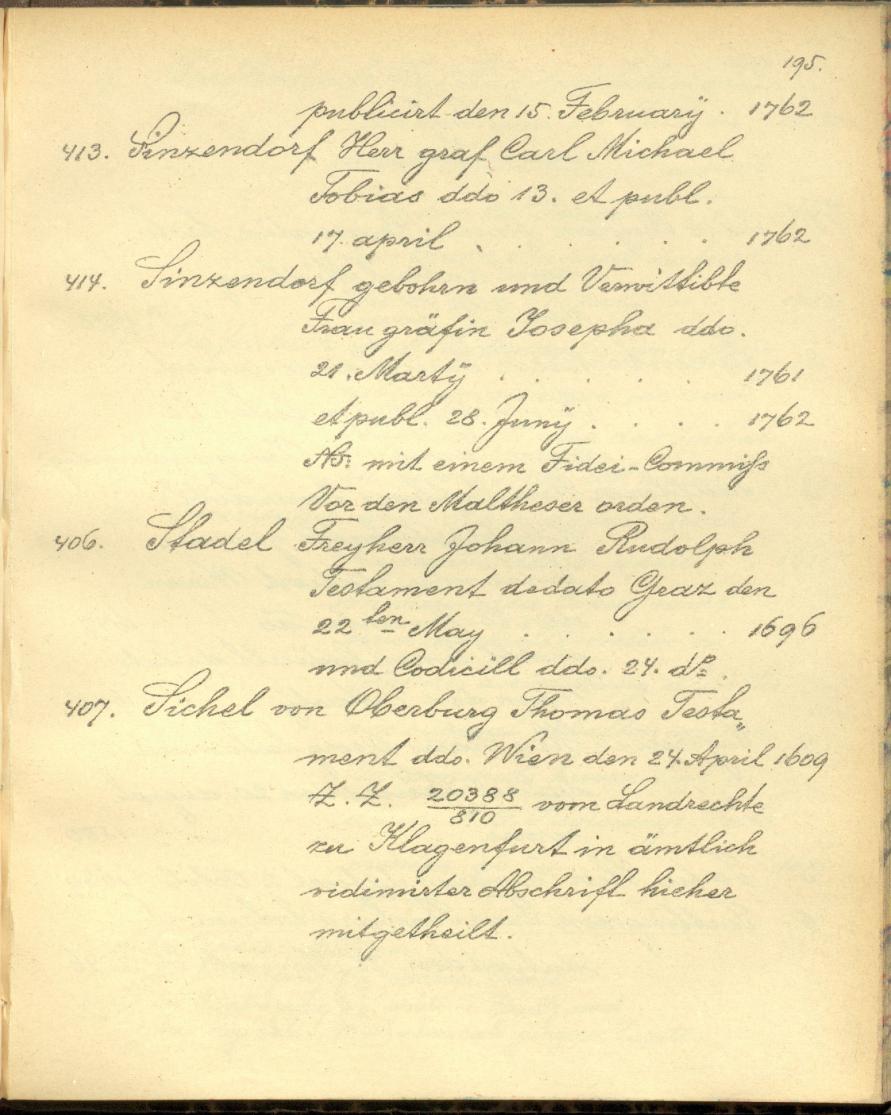 195.
publicirt den 15. Februarÿ. 1762
413. Sinzendorf Herr graf Carl Michael
Tobias ddo 13. et publ.
17. april . . . . . . 1762
414. Sinzendorf gebohrn und Verwittibte
Frau gräfin Josepha ddo.
21. Martÿ . . . . . 1761
et publ. 28. Junÿ . . . . 1762
Nb: mit einem Fidei-Commiſs
Vor den Maltheser orden.
406. Stadel Freyherr Johann Rudolph
Testament dedato Graz den
22ten May . . . . . . 1696
und Codicill ddo. 24. do.
407. Sichel von Oberburg Thomas Testa„
ment ddo. Wien den 24. April 1609
Z. Z. 20388/810 vom Landrechte
zu Klagenfurt in ämtlich
vidimirter Abschrift hieher
mitgetheilt.